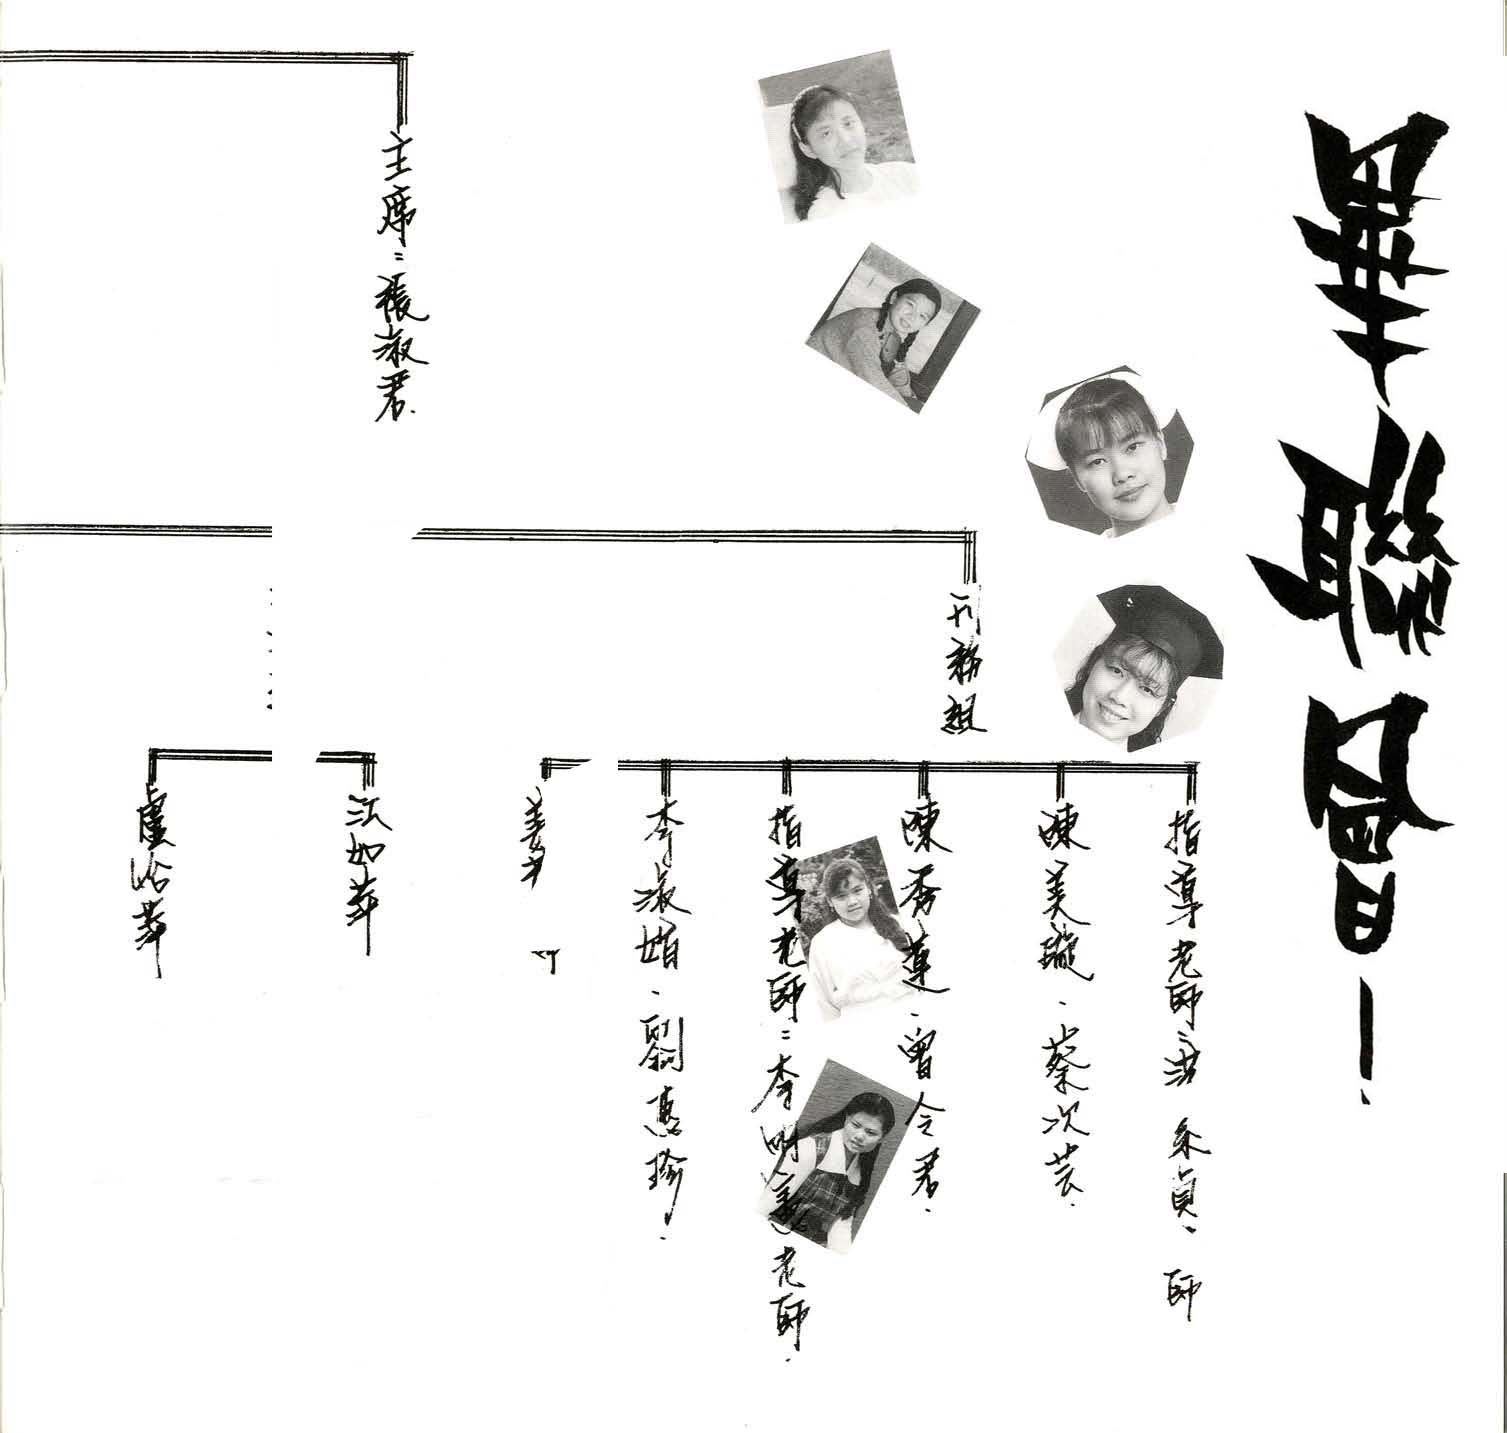 畢聯會
主席：張淑君.
刊務組
指導老師：洪 貞. 師
陳美璇.蔡次芸.
陳秀蓮.曾令君.
指導老師：李明 老師.
李淑娟.劉惠珍.
姜
江如萍
盧